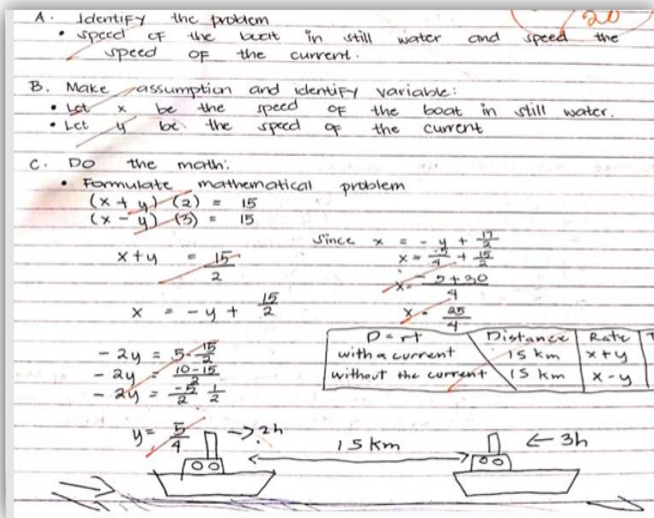 20
A. Identify the problem
• speed of the boat in still water and speed the
speed of the current.
B. Make assumption and identify variable:
• Let x be the speed of the boat in still water.
• Let y be the speed of the current
C. Do the math:
• Formulate mathematical problem
(x + y) (2) = 15
(x - y) (3) = 15
x + y = 15/2
x = - y + 15/2
- 2y = 5 - 15/2
- 2y = 10 - 15/2
- 2y = -5/2 1/2
y = 5/4
Since x = - y + 17/2
x = -5/4 + 15/2
x = - 5 + 30/4
x = 25/4
D = rt Distance Rate T
with a current 15 km x + y
without the current 15 km x - y
→ 2h
15 km
← 3h